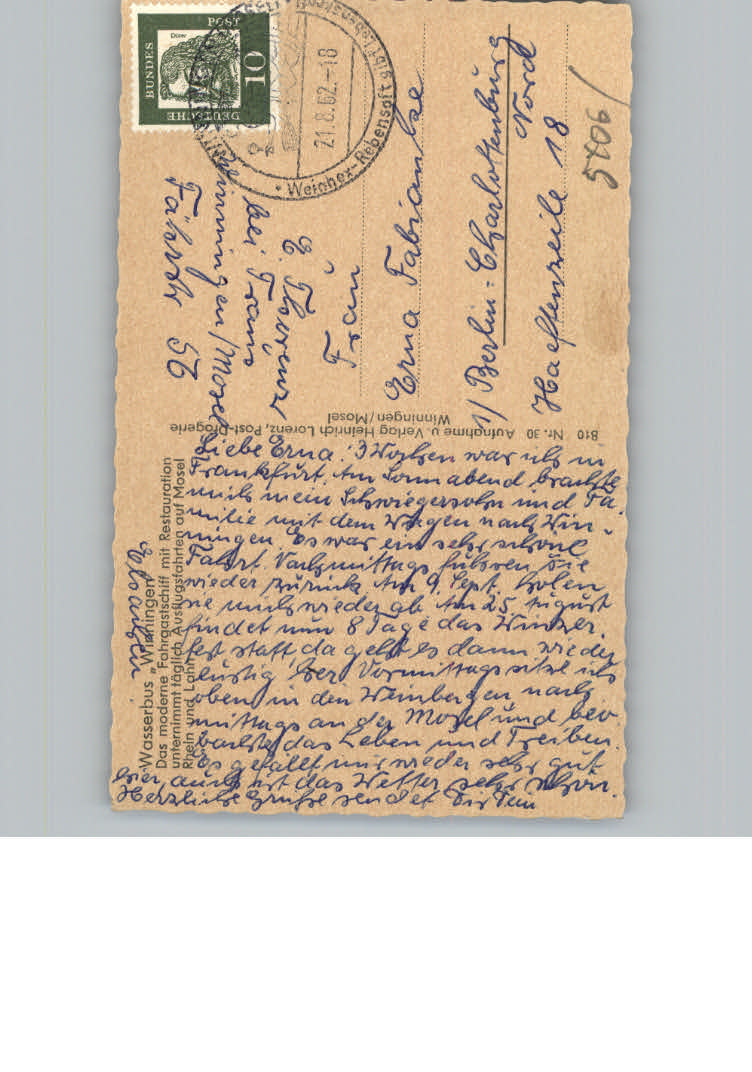 Wasserbus „Winningen“
Das moderne Fahrgastschiff mit Restauration
unternimmt täglich Ausflugsfahrten auf Mosel
Rhein und Lahn
Liebe Erna! 3 Wochen war ich in
Frankfurt. Am Sonnabend brachte
mich mein Schwiegersohn und Fa-
milie mit dem Wagen nach Win-
ningen. Es war ein sehr schöne
Fahrt. Nachmittags fuhren sie
wieder zurück. Am 9. Sept. holen
sie mich wieder ab. Am 25. August
findet nun 8 Tage das Winzer-
fest statt, da geht es dann wieder
lustig her. Vormittags sitze ich
oben in den Weinbergen nach-
mittags an der Mosel und beo-
bachte das Leben und Treiben.
Es gefällt mir wieder sehr gut
hier, auch ist das Wetter sehr schön.
Herzliche Grüße sendet Dir Dein
810 Nr. 30 Aufnahme u. Verlag Heinrich Lorenz, Post-Drogerie
Winningen/Mosel
DEUTSCHE
BUNDES
POST
10
Dürer
21.8.62.-18
Weinhex-Rebensaft gibt Lebenskraft
bei Frau
Winningen/Mosel
Fährstr 56
Frau
Erna Fabianke
1/ Berlin-Charlottenburg
Nord
Haeftenzeile 18
5406/